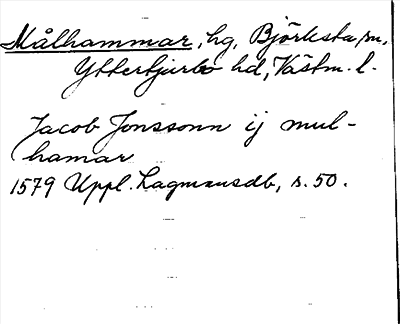 Målhammar, hg, Björksta sn,
Yttertjurbo hd, Västm. l.
Jacob Jonssonn ij mul-
hamar
1579 Uppl. Lagmansdb, s. 50.